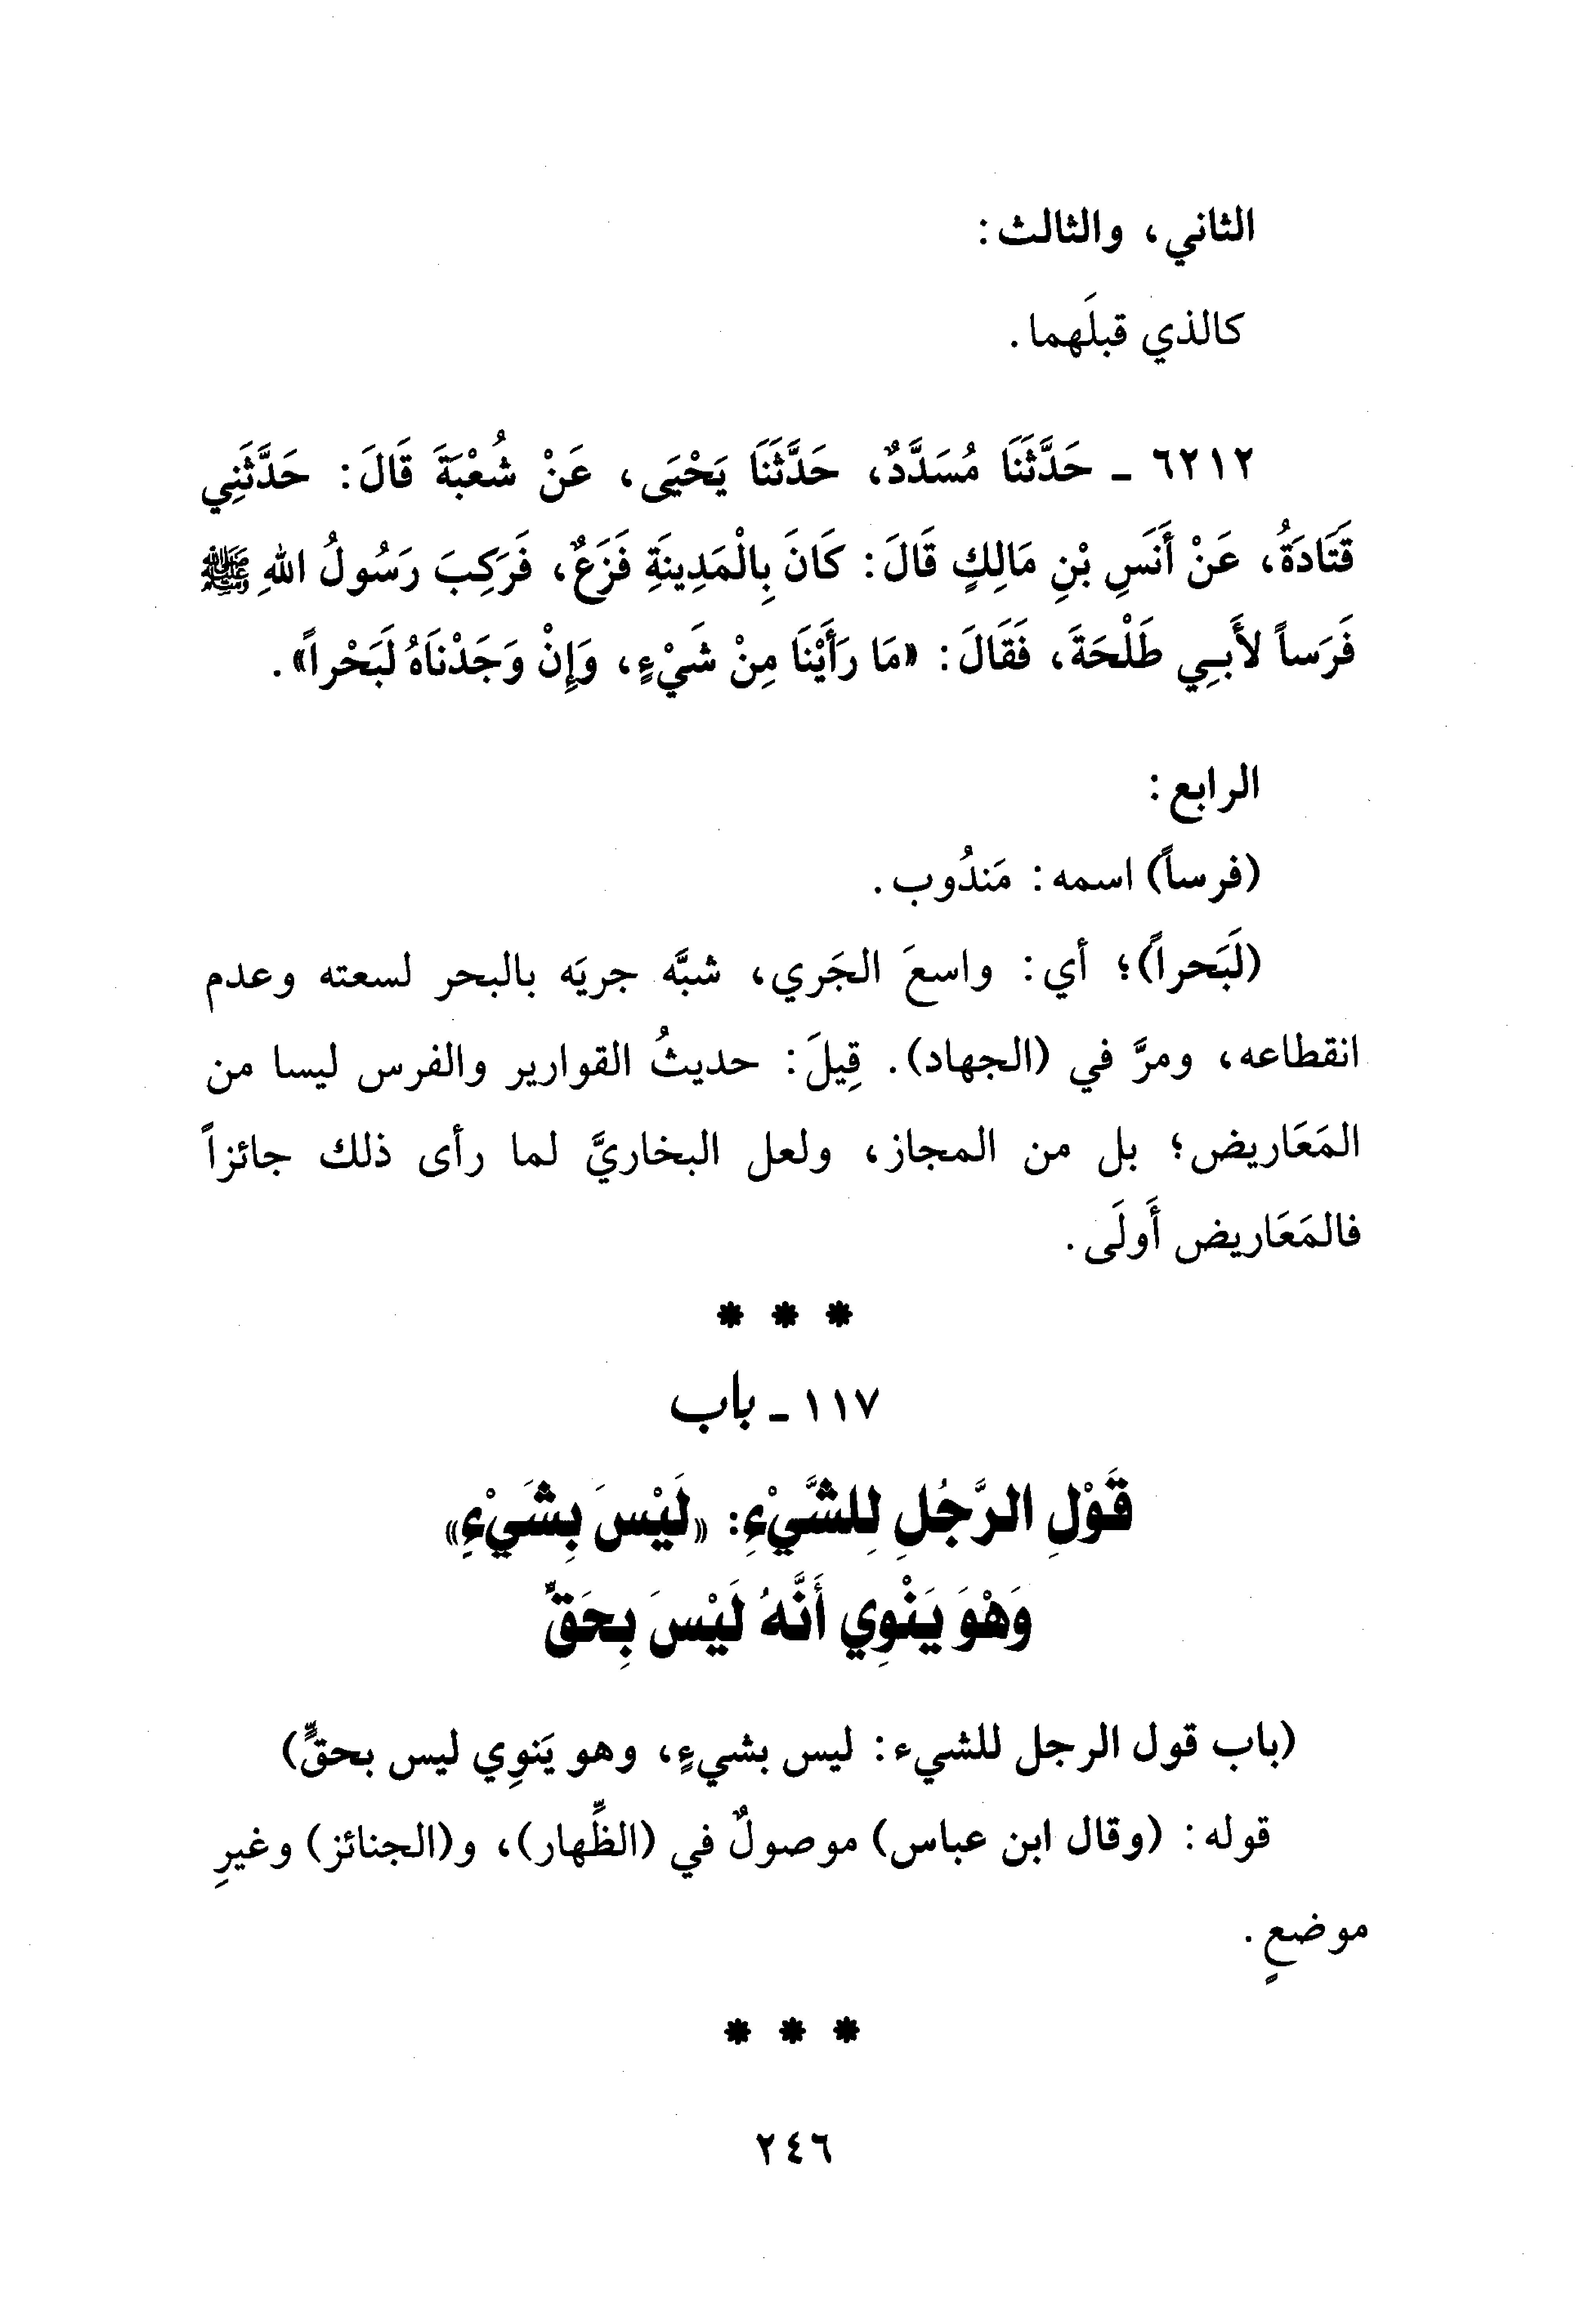 الثاني، والثالث:
كالذي قبلَهما.
٦٢١٢ ـ حَدَّثَنَا مُسَدَّدٌ، حَدَّثَنَا يَحْيَى، عَنْ شُعْبَةَ قَالَ: حَدَّثَنِي
قَتَادَةُ، عَنْ أَنَسِ بْنِ مَالِكٍ قَالَ: كَانَ بِالْمَدِينَةِ فَزَعٌ، فَرَكِبَ رَسُولُ اللهِ ﷺ
فَرَساً لأَبِي طَلْحَةَ، فَقَالَ: «مَا رَأَيْنَا مِنْ شَيْءٍ، وَإِنْ وَجَدْنَاهُ لَبَحْراً».
الرابع:
(فرساً) اسمه: مَندُوب.
(لَبَحراً)؛ أي: واسعَ الجَري، شبَّه جريَه بالبحر لسعته وعدم
انقطاعه، ومرَّ في (الجهاد). قِيلَ: حديثُ القوارير والفرس ليسا من
المَعَاريض؛ بل من المجاز، ولعل البخاريَّ لما رأى ذلك جائزاً
فالمَعَاريض أَولَى.
* * *
١١٧ ـ باب
قَوْلِ الرَّجُلِ لِلشَّيْءِ: «لَيْسَ بِشَيْءٍ»
وَهْوَ يَنْوِي أَنَّهُ لَيْسَ بِحَقٍّ
(باب قول الرجل للشيء: ليس بشيءٍ، وهو يَنوِي ليس بحقٍّ)
قوله: (وقال ابن عباس) موصولٌ في (الظِّهار)، و(الجنائز) وغيرِ
موضعٍ.
* * *
٢٤٦